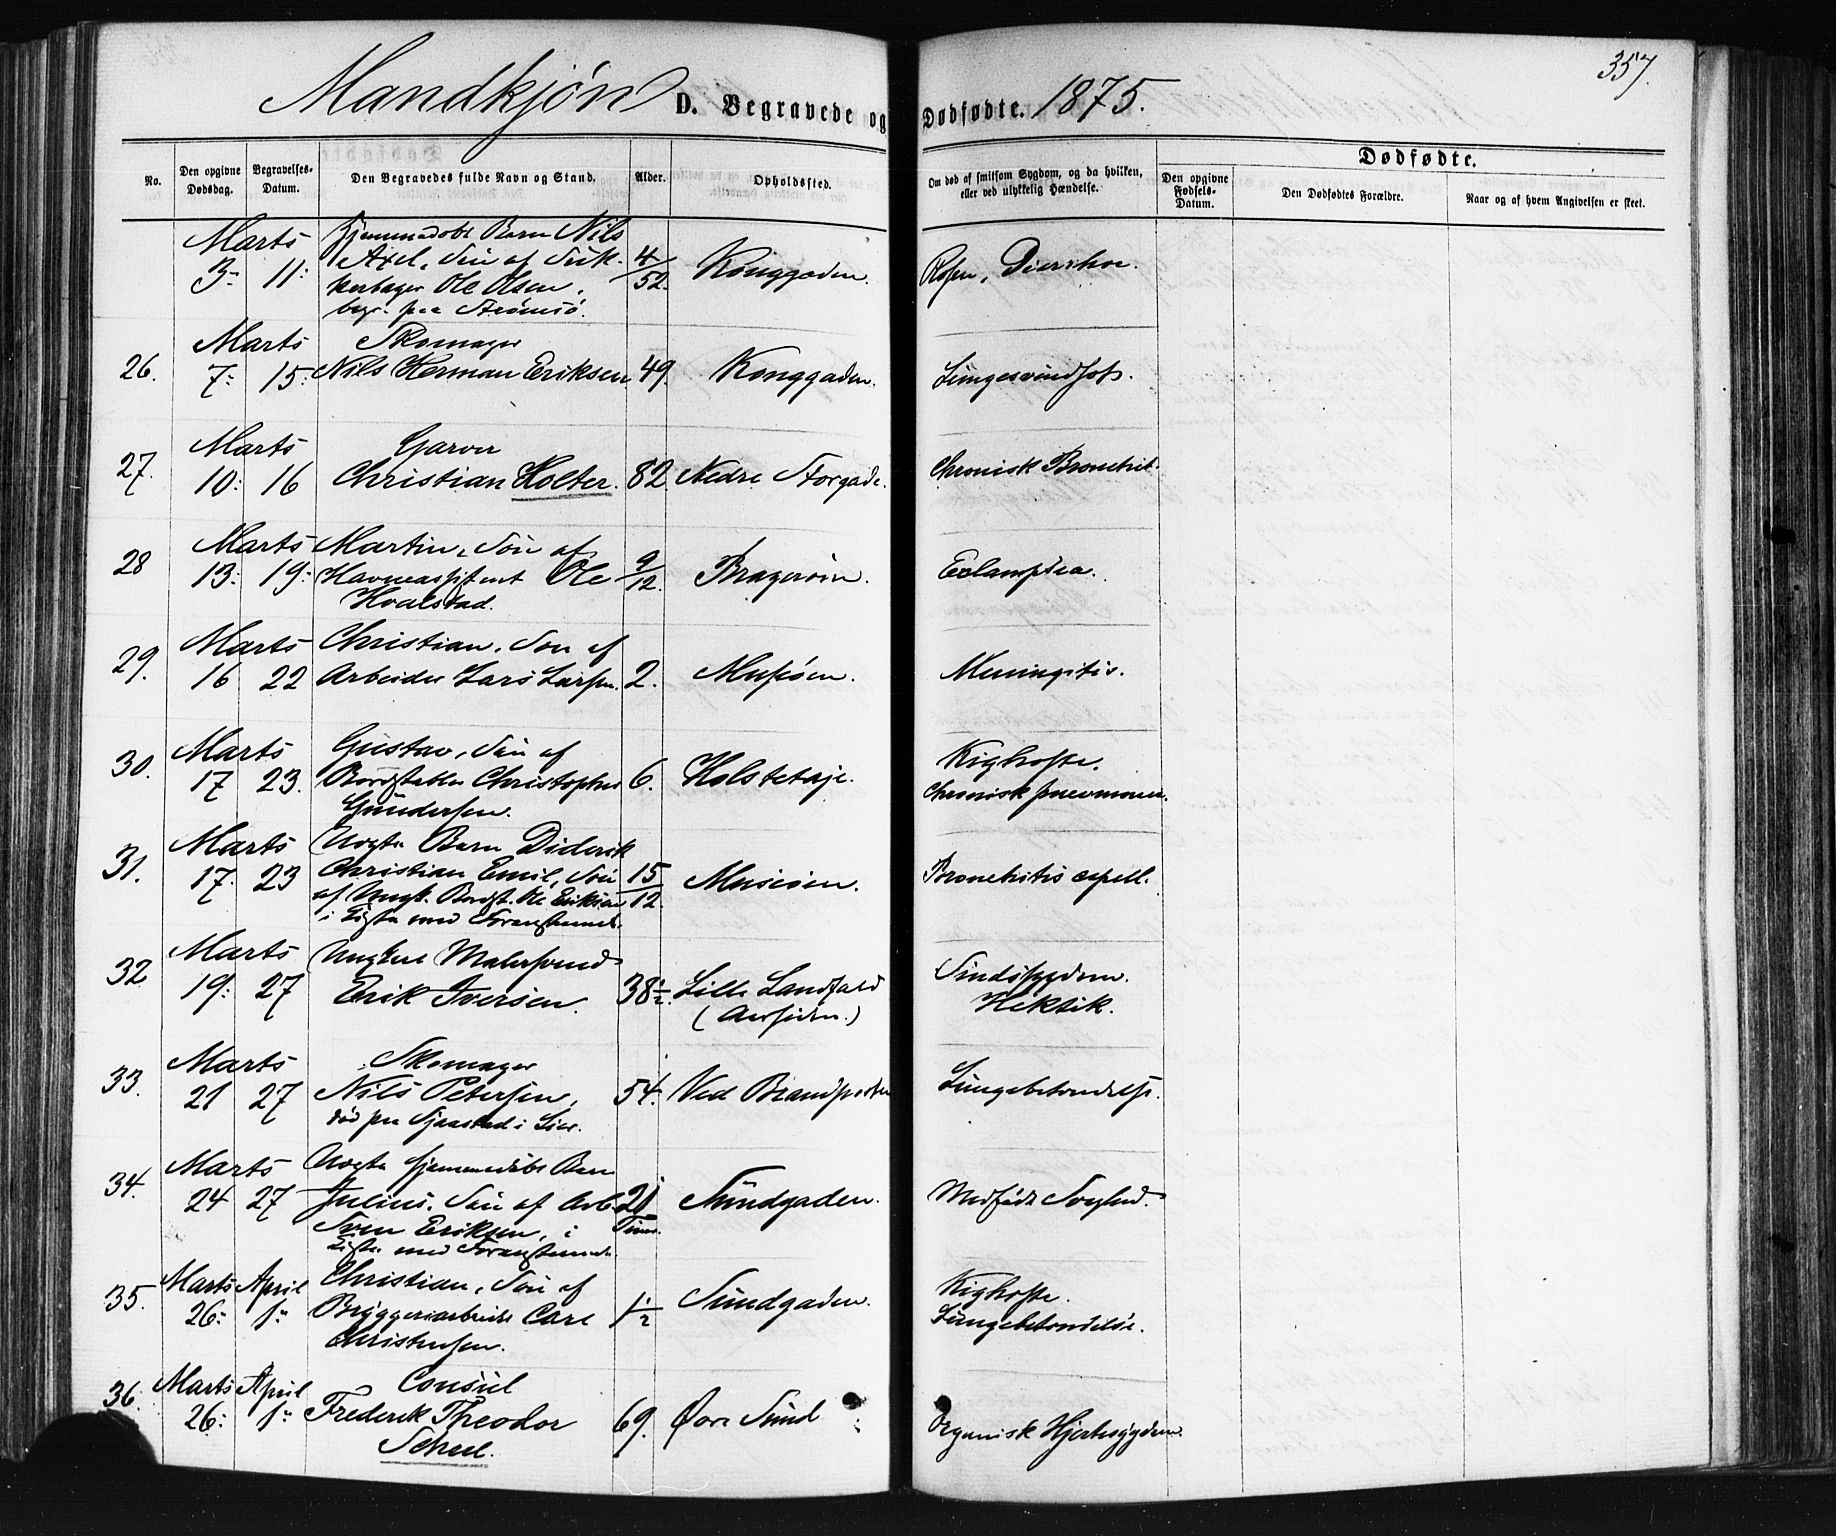 357.
Mandkjøn D. Begravede og Dødfødte. 1875.
No. Den opgivne Dødsdag. Begravelses-Datum. Den Begravedes fulde Navn og Stand. Alder. Opholdssted. Om død af smitsom Sygdom, og da hvilken, eller ved ulykkelig Hændelse. Dødfødte.
Den opgivne Fødsels-Datum. Den Dødfødtes Forældre. Naar og af hvem Angivelsen er skeet.
Marts Hjemmedøbt Barn Nils
3- 11: Axel, Søn af Suk- 4/52. Konggaden. Rosen, Diarrhoe.
kerbager Ole Olsen,
begr. paa Strømsø.
Marts Skomager
26. 7: 15: Nils Herman Eriksen 49. Konggaden. Lungesvindsot.
Marts Garver
27. 10: 16 Christian Holter. 82. Nedre Storgade. Chronisk Bronchit.
Marts Martin, Søn af
28 13: 19: Havneassistent Ole 9/12. Bragerøen. Eclampsia.
Hvalstad.
Marts Christian, Søn af
29. 16 22 Arbeider Lars Larsen. 2. Musøen. Meningitis.
Marts Gustav, Søn af Kighoste.
30. 17 23. Bordstabler Christopher 6. Holstetøje. Chronisk pneumonie.
Gundersen.
Marts Uægte Barn Diderik
31. 17. 23 Christian Emil, Søn 15/12. Musøen. Bronchitis capill.
af Ungk. Bordst. Ole Eriksen
i Ligtn med Foranstaaende.
Marts Ungkarl Malersvend Sindssygdom.
32 19: 27 Erik Iversen. 38½. Lille Landfald Hektik.
(Aassiden.)
Marts Skomager
33. 21 27 Nils Petersen, 54. Ved Brandposten Lungebetændelse.
død paa Sjaastad i Lier.
Marts Uægte hjemmedøbt Barn
34. 24 27 Julius, Søn af Arb. 21 Timer. Sundgaden. Medfødt Svaghed.
Sven Eriksen, i
Ligtn med Foranstaaende.
Marts April Christian, Søn af Kighoste.
35. 26: 1: Bryggeriarbeider Carl 1½ Sundgaden. Lungebetændelse.
Christensen.
Marts April Consul
36. 26: 1: Frederik Theodor 69. Øvre Sund Organisk Hjertesygdom.
Scheel.